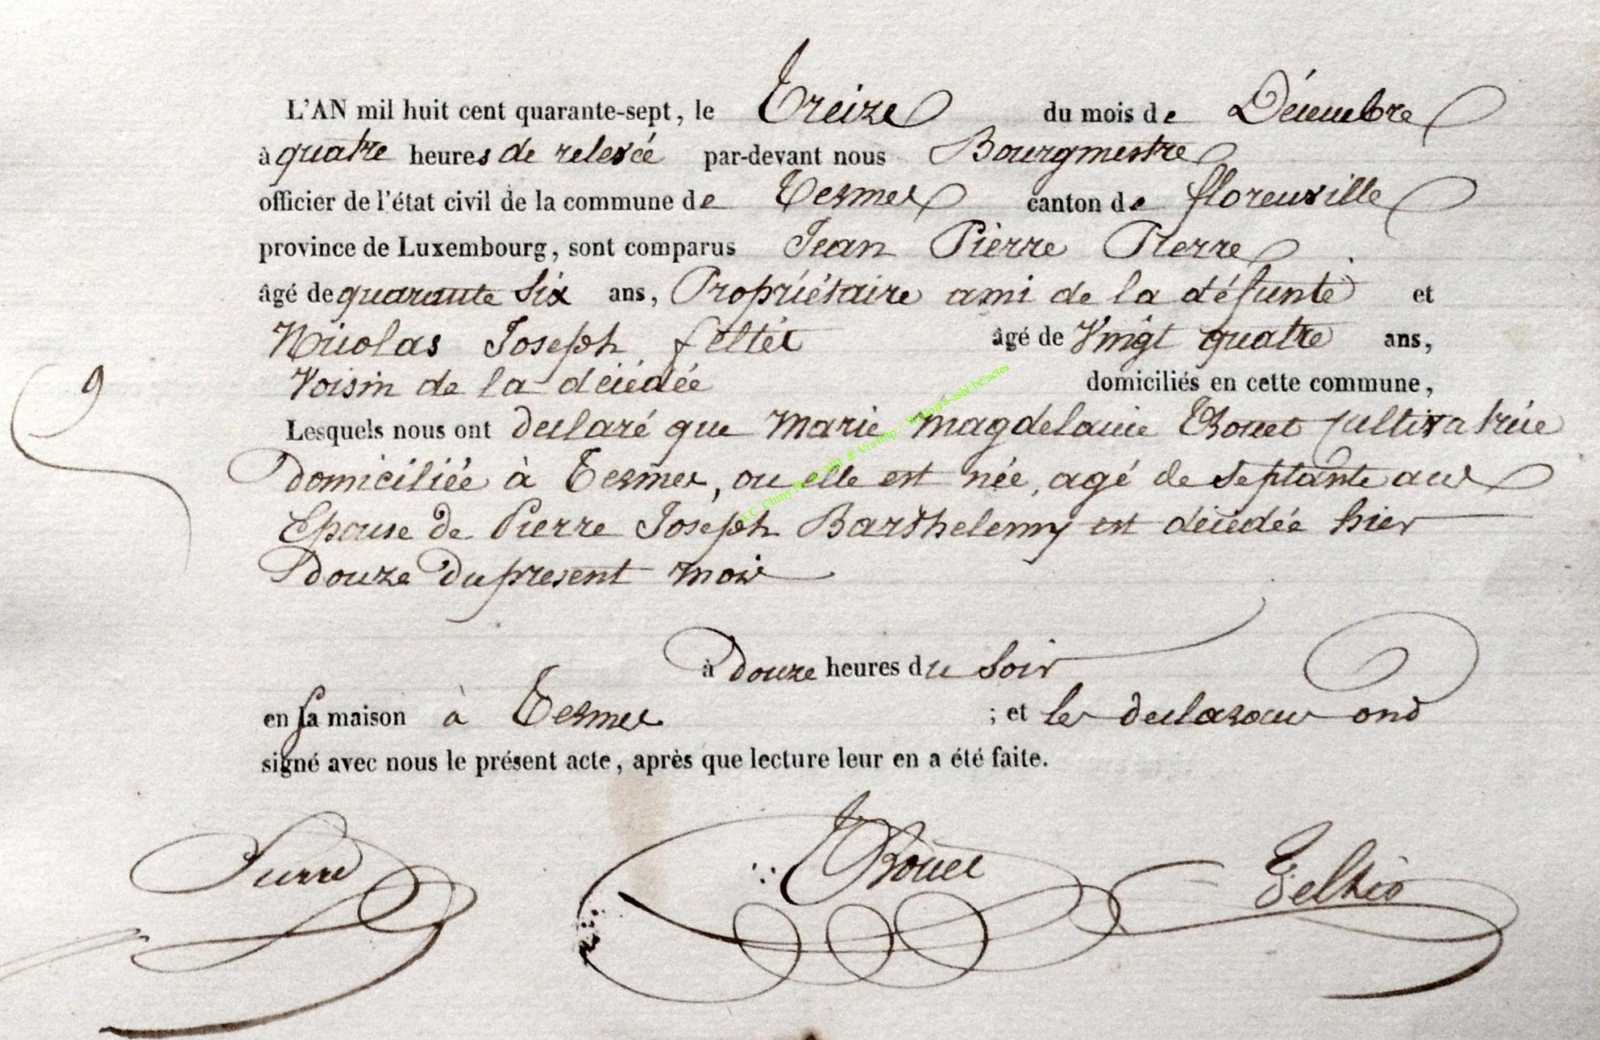 L'AN mil huit cent quarante-sept, le Treize du mois de Décembre
à quatre heures de relevée par-devant nous Bourgmestre
officier de l'état civil de la commune de Termes canton de florenville
province de Luxembourg, sont comparus Jean Pierre Pierre
âgé de quarante six ans, Propriétaire ami de la défunte et
Nicolas Joseph feltés âgé de Vingt quatre ans,
9
Voisin de la décédée domiciliés en cette commune,
Lesquels nous ont declaré que Marie Magdelaine Thouet Cultivatrice
Domiciliée à Termes, ou elle est née, agé de Septante aus
Epouse de Pierre Joseph Barthelemy est décédée hier
douze du present mois
à Douze heures du Soir
en sa maison à Termes ; et les declarans ond
signé avec nous le présent acte, après que lecture leur en a été faite.
Pierre Thouet